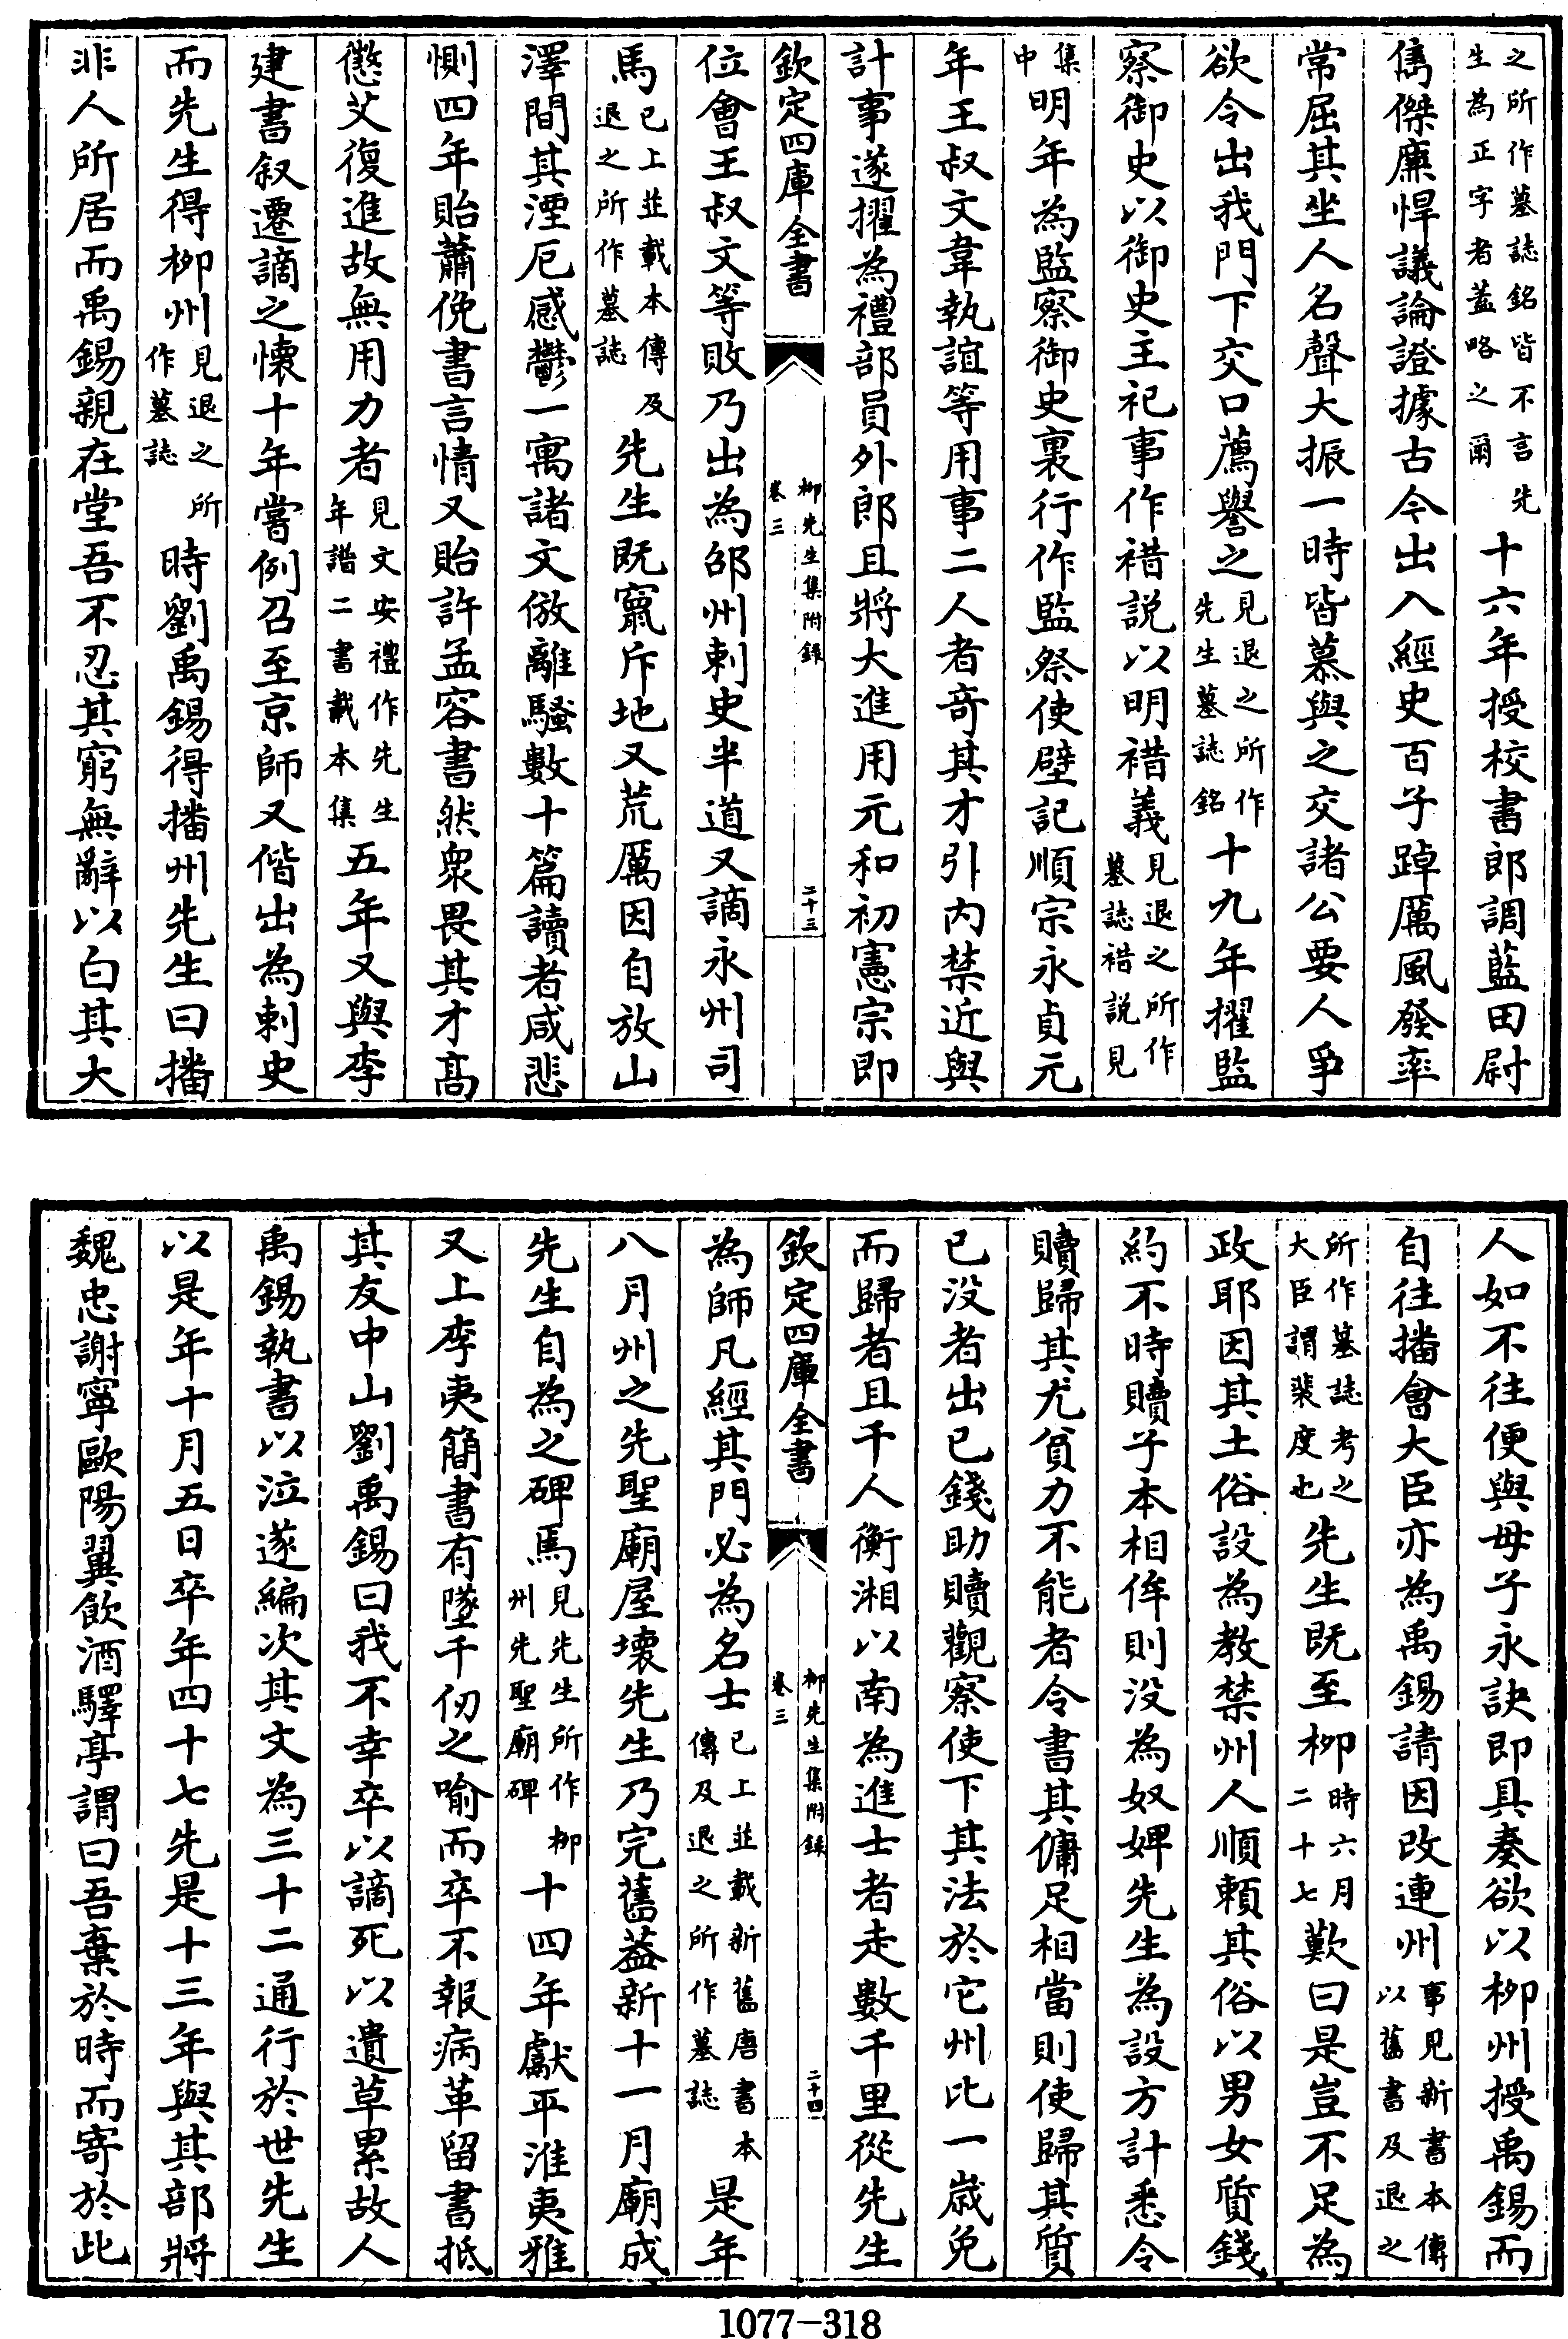 之所作墓誌銘皆不言先生為正字者葢略之爾十六年授校書郎調藍田尉
儁傑廉悍議論證據古今出入經史百子踔厲風發率
常屈其坐人名聲大振一時皆慕與之交諸公要人爭
欲令出我門下交口薦譽之見退之所作先生墓誌銘十九年擢監
察御史以御史主祀事作䄍説以明䄍義見退之所作墓誌䄍説見
集中明年為監察御史裏行作監祭使壁記順宗永貞元
年王叔文韋執誼等用事二人者竒其才引内禁近與
計事遂擢為禮部員外郎且將大進用元和初憲宗即
欽定四庫全書
柳先生集附録
卷三
二十三
位會王叔文等敗乃出為邵州刺史半道又謫永州司
馬已上並載本傳及退之所作墓誌先生既竄斥地又荒厲因自放山
澤間其湮厄感鬱一寓諸文倣離騷數十篇讀者咸悲
惻四年貽蕭俛書言情又貽許孟容書然衆畏其才髙
懲艾復進故無用力者見文安禮作先生年譜二書載本集五年又與李
建書叙遷謫之懷十年嘗例召至京師又偕出為刺史
而先生得柳州見退之所作墓誌時劉禹錫得播州先生曰播
非人所居而禹錫親在堂吾不忍其窮無辭以白其大
人如不往便與母子永訣即具奏欲以柳州授禹錫而
自往播會大臣亦為禹錫請因改連州事見新書本傳以舊書及退之
所作墓誌考之大臣謂裴度也先生既至柳時六月二十七歎曰是豈不足為
政耶因其土俗設為教禁州人順賴其俗以男女質錢
約不時贖子本相侔則没為奴婢先生為設方計悉令
贖歸其尤貧力不能者令書其傭足相當則使歸其質
已没者出已錢助贖觀察使下其法於它州比一嵗免
而歸者且千人衡湘以南為進士者走數千里從先生
欽定四庫全書
柳先生集附録
卷三
二十四
為師凡經其門必為名士已上並載新舊唐書本傳及退之所作墓誌是年
八月州之先聖廟屋壊先生乃完舊葢新十一月廟成
先生自為之碑馬見先生所作柳州先聖廟碑十四年獻平淮夷雅
又上李夷簡書有墜千仞之喻而卒不報病革留書抵
其友中山劉禹錫曰我不幸卒以謫死以遺草累故人
禹錫執書以泣遂編次其文為三十二通行於世先生
以是年十月五日卒年四十七先是十三年與其部將
魏忠謝寧歐陽翼飲酒驛亭謂曰吾棄於時而寄於此
1077-318